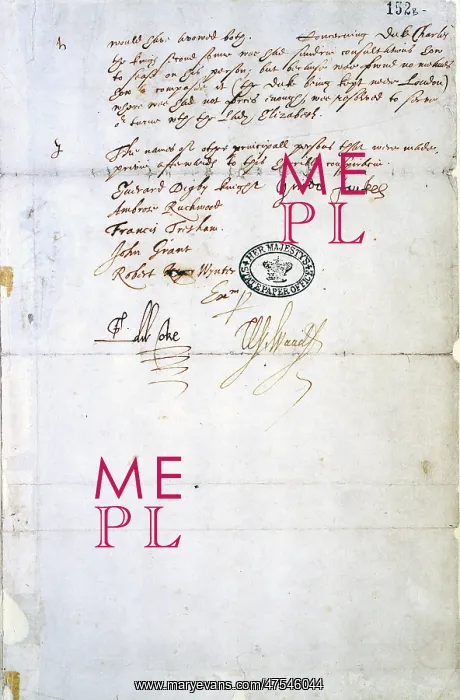 152B
would have avowed both. Concerning Duke Charles
the kings second sonne was had sundrie consultations how
to sease on his person, but because was found no meanes
how to compasse it (the Duke being kept neere London)
where was had not forces enough, was resolved to serve
o'r turne with the Lady Elizabeth.
The names of other principall persons that were made
privie afterwards to this horrible conspiracie.
Everard Digby knight Guido Faukes
Ambrose Ruckwood
Francis Tresham.
John Grant
Robert Wynter
Exm
Edw Coke W. Waad
HER MAJESTY'S STATE PAPER OFFICE
ME
PL
ME
PL
www.maryevans.com/47546044